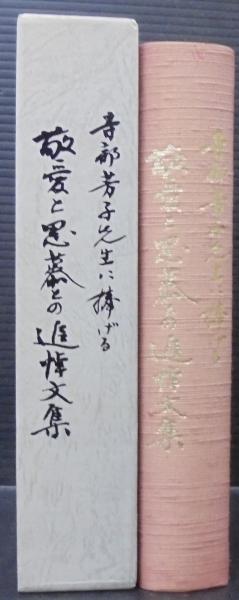 寺部芳子先生に捧げる
敬愛と思慕との追悼文集
寺部芳子先生に捧げる
敬愛と思慕との追悼文集